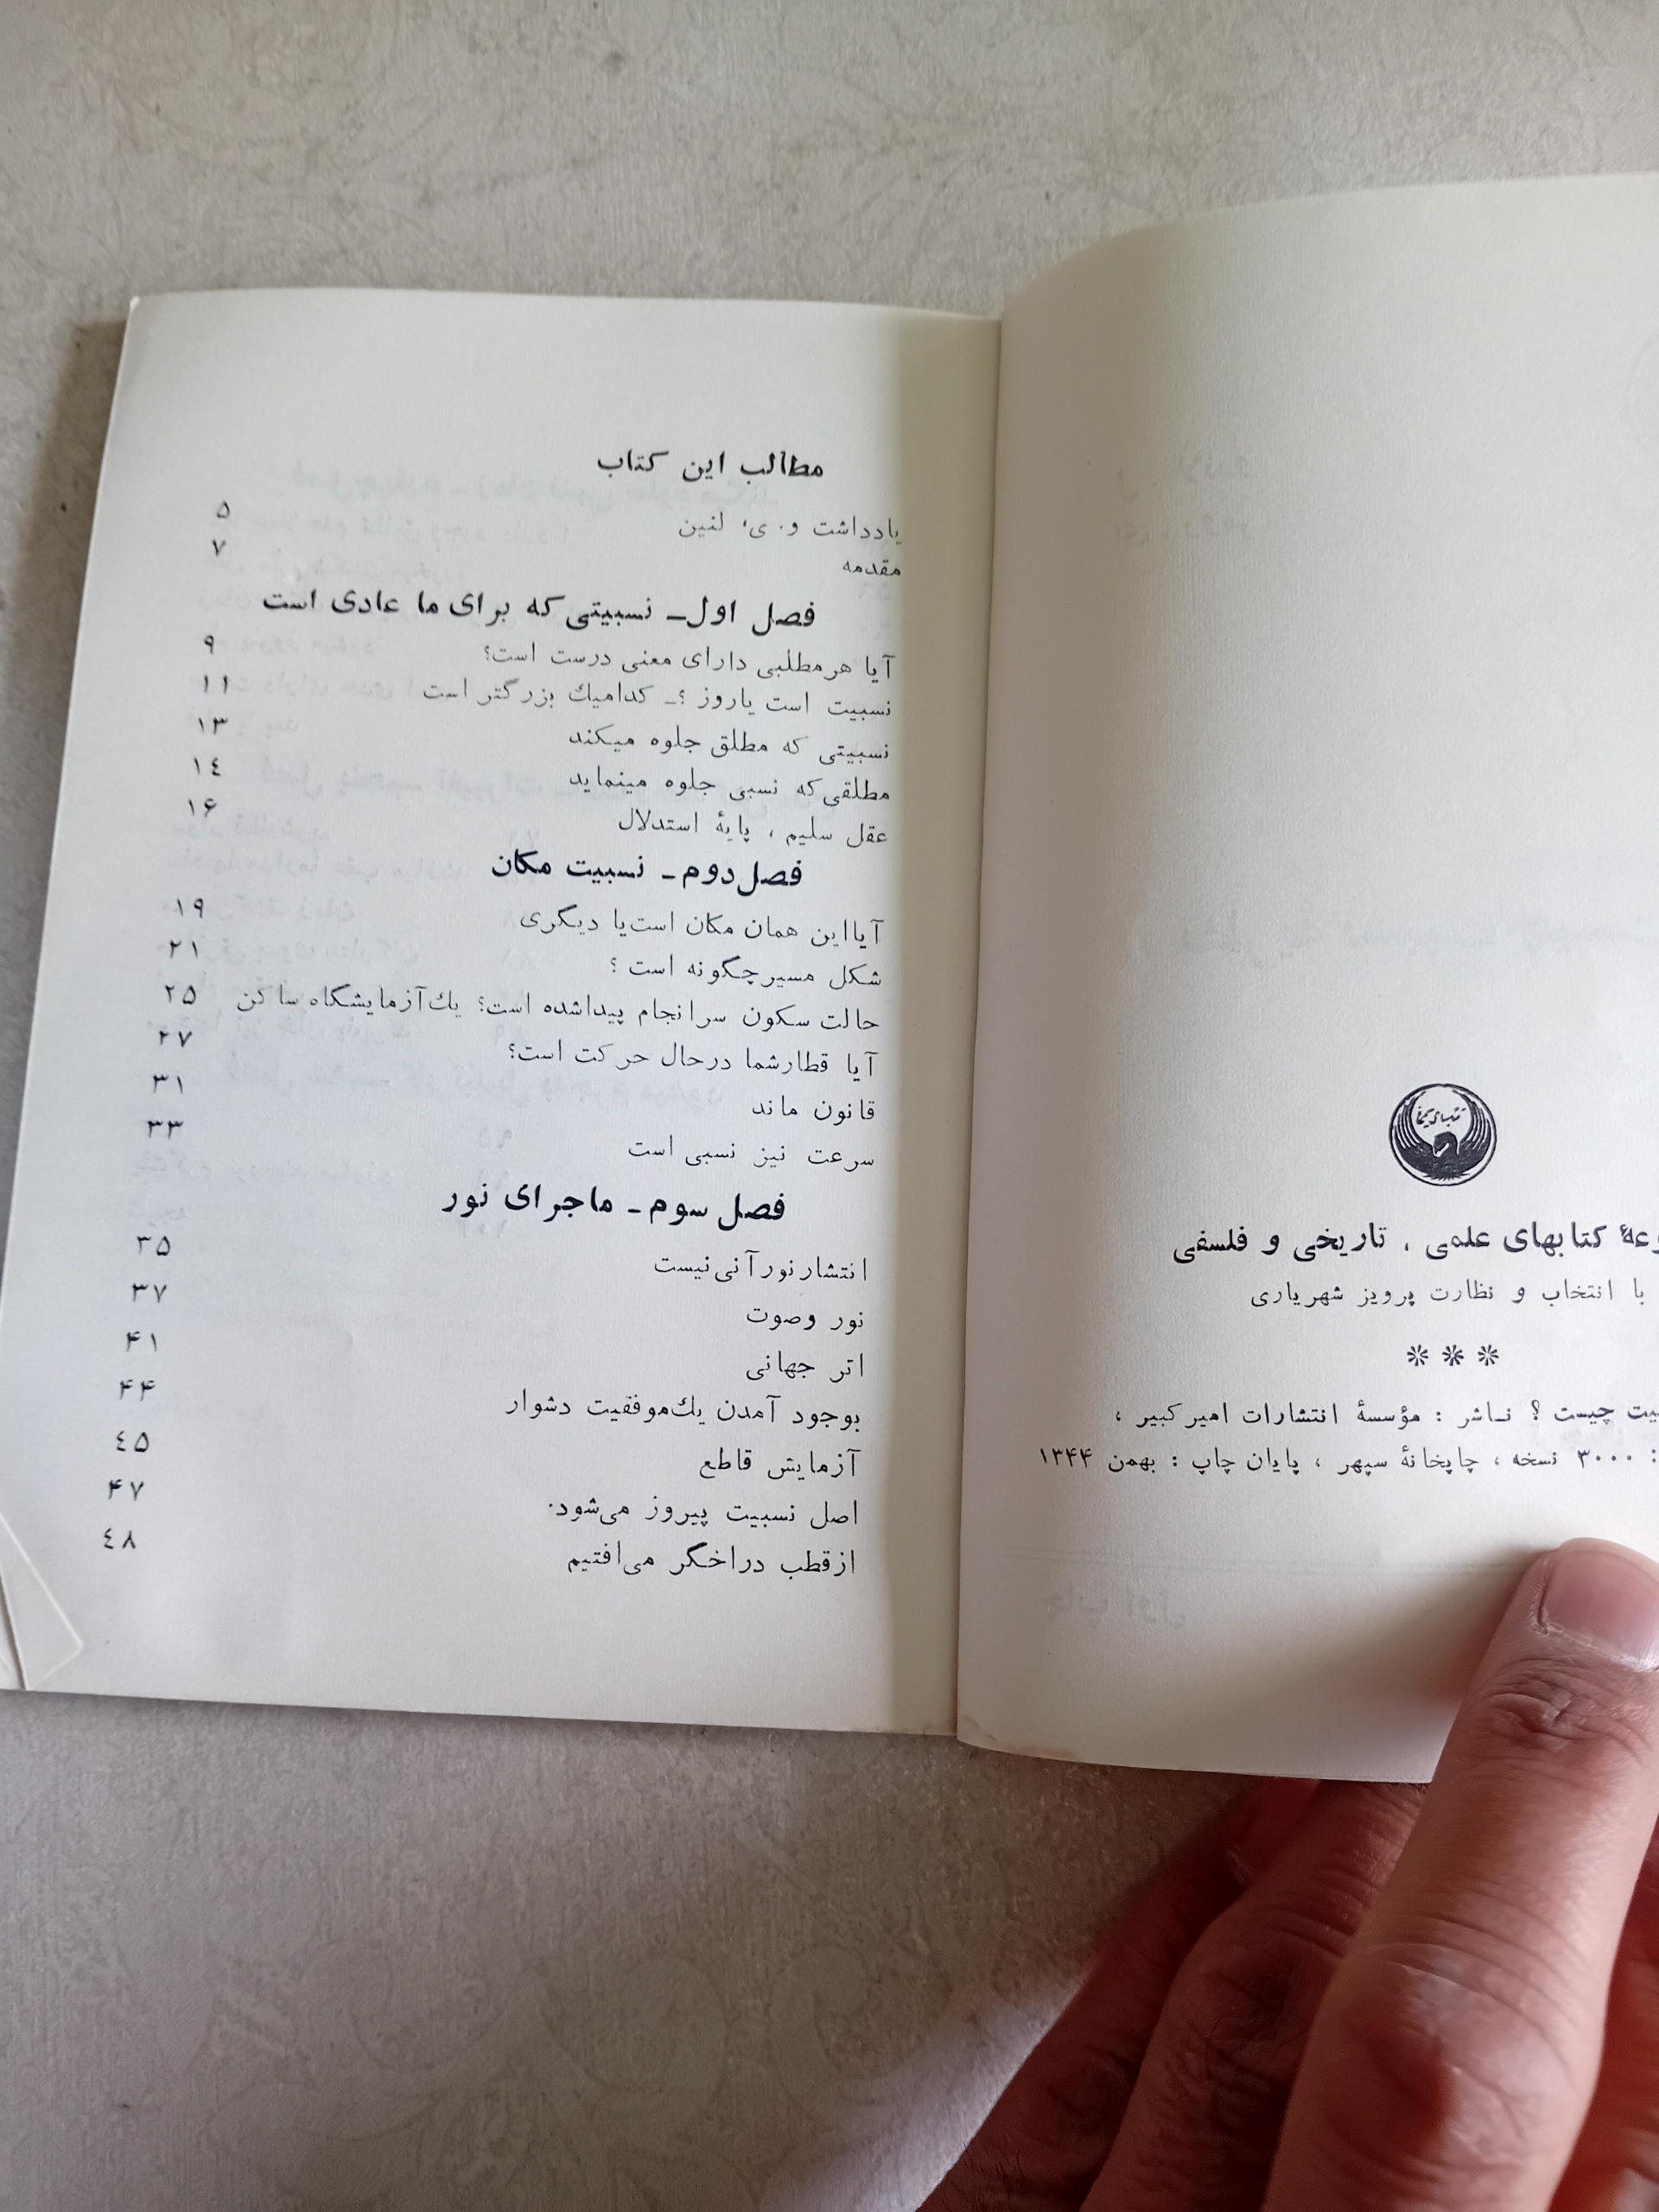 کتابهای سیمرغ
کتابهای علمی ، تاریخی و فلسفی
با انتخاب و نظارت پرویز شهریاری
* * *
چیست ؟ ناشر : مؤسسهٔ انتشارات امیرکبیر ،
: ۳۰۰۰ نسخه ، چاپخانهٔ سپهر ، پایان چاپ : بهمن ۱۳۴۴
مطالب این کتاب
یادداشت و. ی. لنین ۵
مقدمه ۷
فصل اول ـ نسبیتی که برای ما عادی است
آیا هرمطلبی دارای معنی درست است؟ ۹
نسبیت است یاروز ؟ـ کدامیك بزرگتر است ۱۱
نسبیتی که مطلق جلوه میکند ۱۳
مطلقی که نسبی جلوه مینماید ۱٤
عقل سلیم ، پایهٔ استدلال ۱۶
فصل دوم ـ نسبیت مکان
آیااین همان مکان است یا دیگری ۱۹
شکل مسیر چگونه است ؟ ۲۱
حالت سکون سرانجام پیداشده است؟ یك آزمایشگاه ساکن ۲۵
آیا قطارشما درحال حرکت است؟ ۲۷
قانون ماند ۳۱
سرعت نیز نسبی است ۳۳
فصل سوم ـ ماجرای نور
انتشار نور آنی نیست ۳۵
نور وصوت ۳۷
اتر جهانی ۴۱
بوجود آمدن یك موفقیت دشوار ۴۴
آزمایش قاطع ٤۵
اصل نسبیت پیروز می‌شود. ۴۷
ازقطب دراخگر می‌افتیم ٤۸